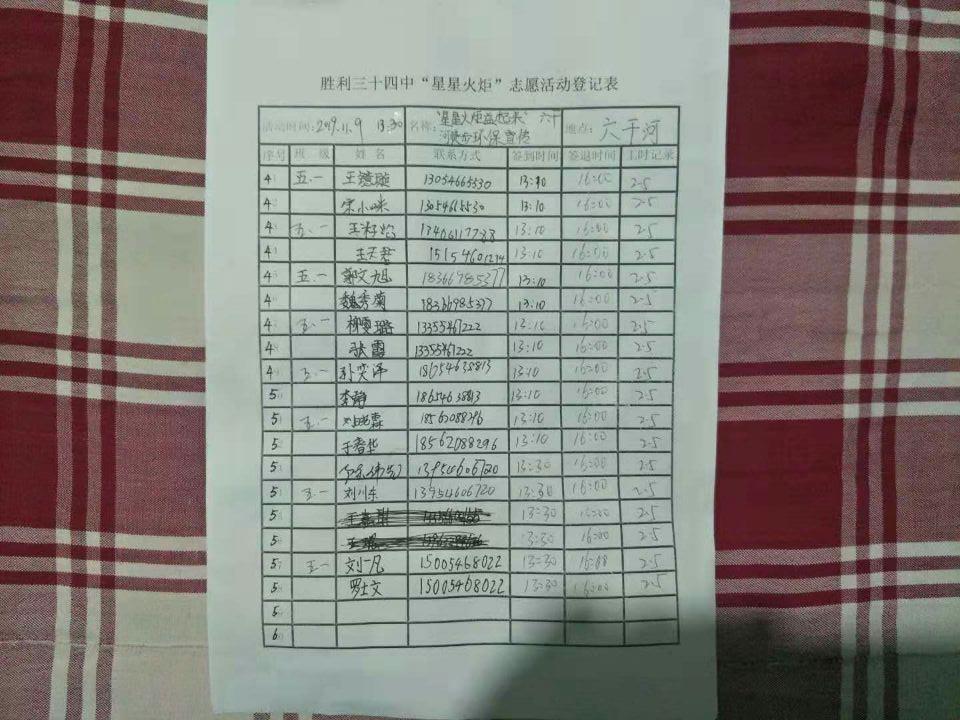 胜利三十四中“星星火炬”志愿活动登记表
活动时间: 2019.11.9 13:30 名称: “星星火炬益起来”六干河 环保宣传 地点: 六干河
序号 班 级 姓 名 联系方式 签到时间 签退时间 工时记录
4 五.一 王 璇 13054665530 13:10 16:00 2.5
4 宋小咪 13054665530 13:10 16:00 2.5
4 五.一 王 13406117788 13:10 16:00 2.5
4 王天君 15154601274 13:10 16:00 2.5
4 五.一 郭文旭 18366985377 13:10 16:00 2.5
4 魏秀菊 18366985377 13:10 16:00 2.5
4 五.一 柳雯璐 13355467222 13:10 16:00 2.5
4 张霞 13355467222 13:10 16:00 2.5
4 五.一 孙奕泽 18654638813 13:10 16:00 2.5
5 李静 18654638813 13:10 16:00 2.5
5 五.一 刘 霖 18562088296 13:10 16:00 2.5
5 于春华 18562088296 13:10 16:00 2.5
5 13954606720 13:30 16:00 2.5
5 五一 刘川东 13954606720 13:30 16:00 2.5
5 13:30 16:00 2.5
5 13:30 16:00 2.5
5 五一 刘一凡 15005468022 13:30 16:00 2.5
5 罗士文 15005468022 13:30 16:00 2.5
5
6